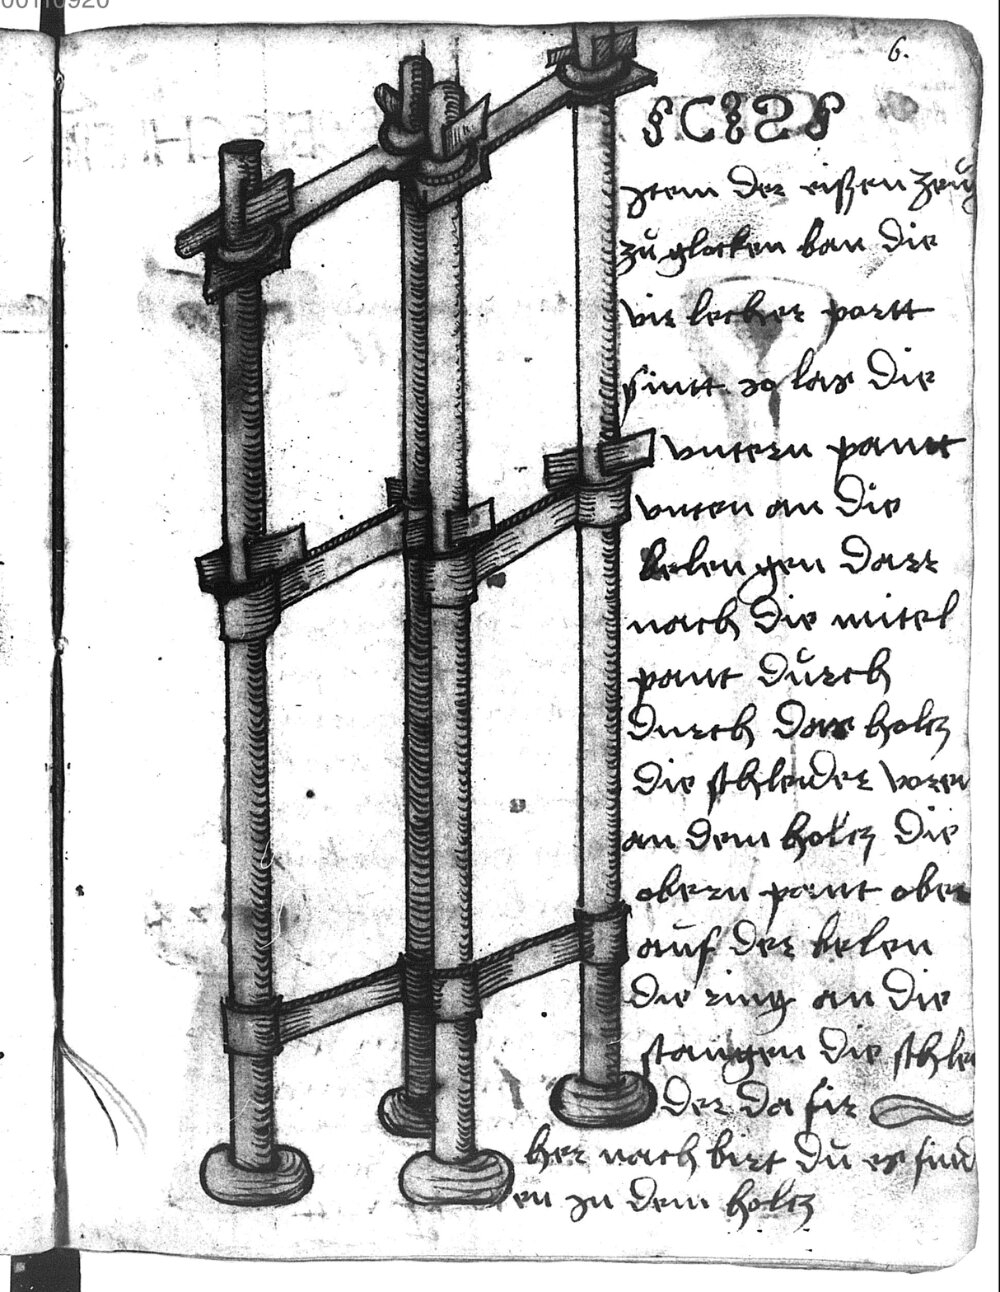 00110920
6.
Jtem der eissen zeug
zu glocken bau die
vir lecher partt
sintt so las die
vntern pantt
vnten an die
belen gen darr
nach die mitel
pant durch
durch das holcz
die schleuder voren
an dem holcz die
obern pant oben
auf der belen
die ring an die
stangen die schleu
der da fir
her nach birt du es find
en zu dem holcz